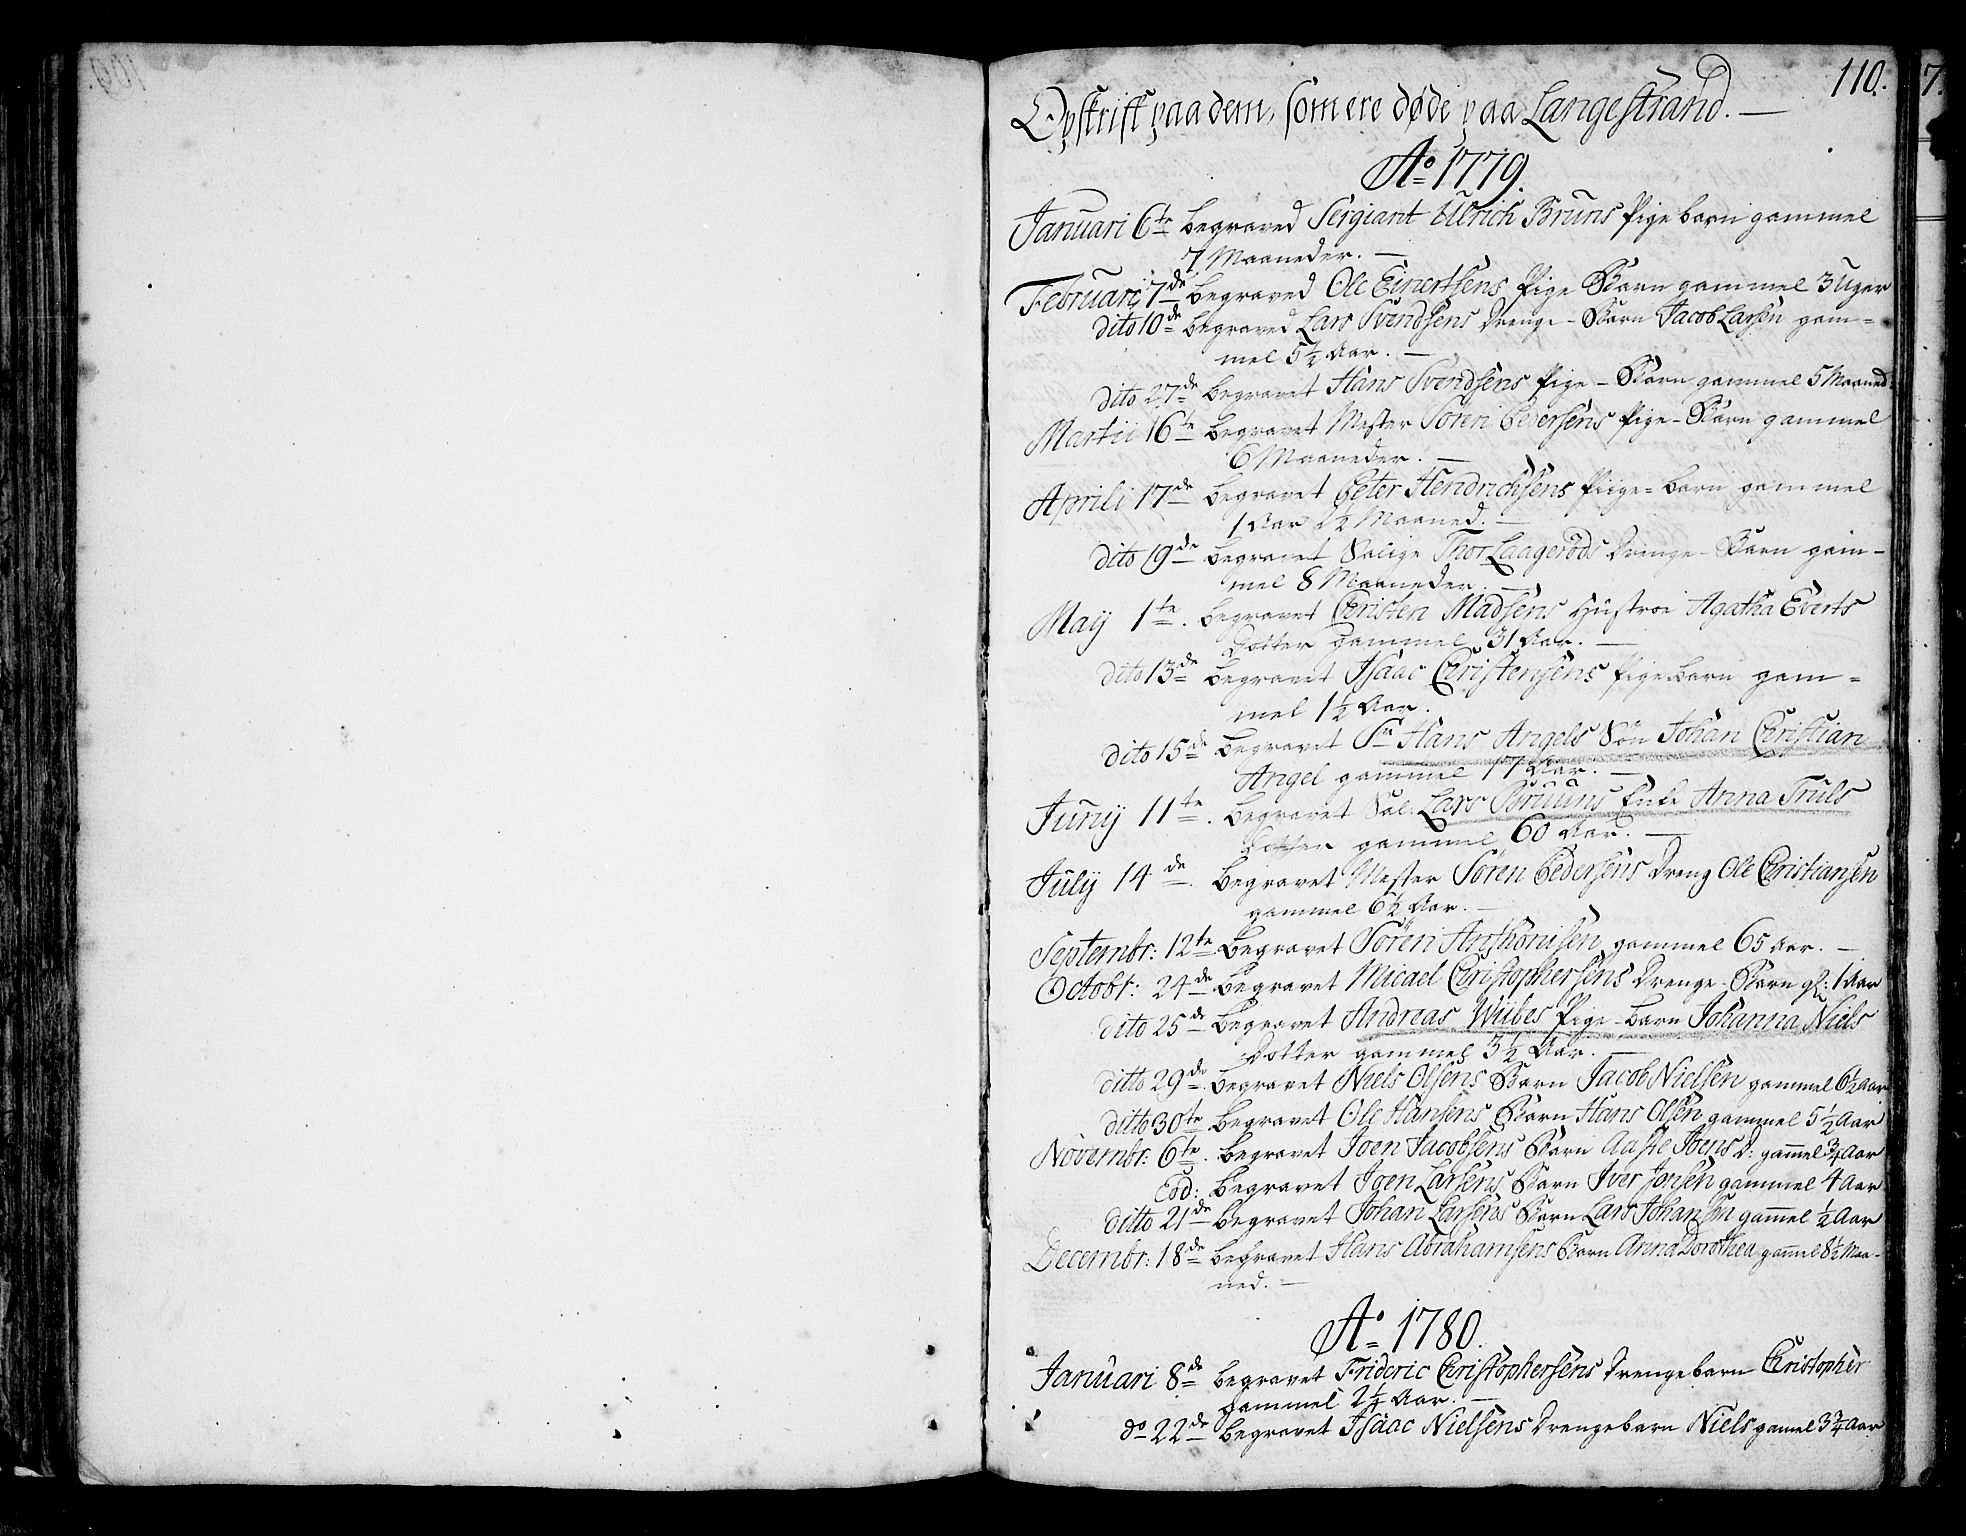 109.
110.
7.
Opskrift paa dem, som ere døde paa Langestrand. —
Ao 1779.
Januari 6te begraved Sergiant Ulrich Bruns Pige barn gammel
7 Maaneder. —
Februarij 7de begraved Ole Einertsens Pige Barn gammel 3 Uger
dito 10de begraved Lars Svendsens Drenge-Barn Jacob Larsen gam=
mel 5½ Aar. —
dito 27de begravet Hans Svendsens Pige-Barn gammel 5 Maaned:
Martii 16te begravet Mester Sören Pedersens Pige-Barn gammel
6 Maaneder. —
Aprili 17de begravet Peter Hendrichsens Piige=barn gammel
1 Aar 2½ Maaned. —
dito 19de begravet Salige Thor Laagerøds Drenge-Barn gam-
mel 8 Maaneder. —
Maij 1te. begravet Christen Madsens Hustroe Agatha Everts
Dotter gammel 31 Aar. —
dito 13de begravet Isaac Christensens Pigebarn gam=
mel 1½ Aar.
dito 15de begravet Sr Hans Angels Sön Johan Christian
Angel gammel 17 Aar. —
Junij 11te. begravet Sal. Lars Bruuns Enke Anna Truls
Dotter gammel 60 Aar. —
Julij 14de. begravet Mester Sören Pedersens Dreng Ole Christiansen
gammel 6½ Aar. —
Septembr: 12te begravet Sören Anthonisen gammel 65 Aar. —
Octobr: 24de begravet Micael Christophersens Drenge-Barn gl: 1 Aar
dito 25de begravet Andreas Wiibes Pige-barn Johanna Niels
Dotter gammel 3½ Aar. —
ditto 29de begravet Niels Olsens Barn Jacob Nielsen gammel 6½ Aar
ditto 30te begravet Ole Hansens Barn Hans Olsen gammel 5½ Aar
Novembr: 6te. begravet Joen Jacobsens Barn Aaste Joens D: gam̄el ¾ Aar
Eod: begravet Joen Larsens Barn Iver Jonsen gammel 4 Aar
ditto 21de begravet Johan Larsens Barn Lars Johansen gam̄el ½ Aar
Decembr: 18de begravet Hans Abrahamsens Barn Anna Dorothea gam̄el 8½ Maa-
ned. —
Ao 1780.
Januari 8de begravet Frideric Christophersens Drengebarn Christopher
gammel 2¼ Aar. —
do 22de begravet Isaac Nielsens Drengebarn Niels gam̄el 3¾ Aar